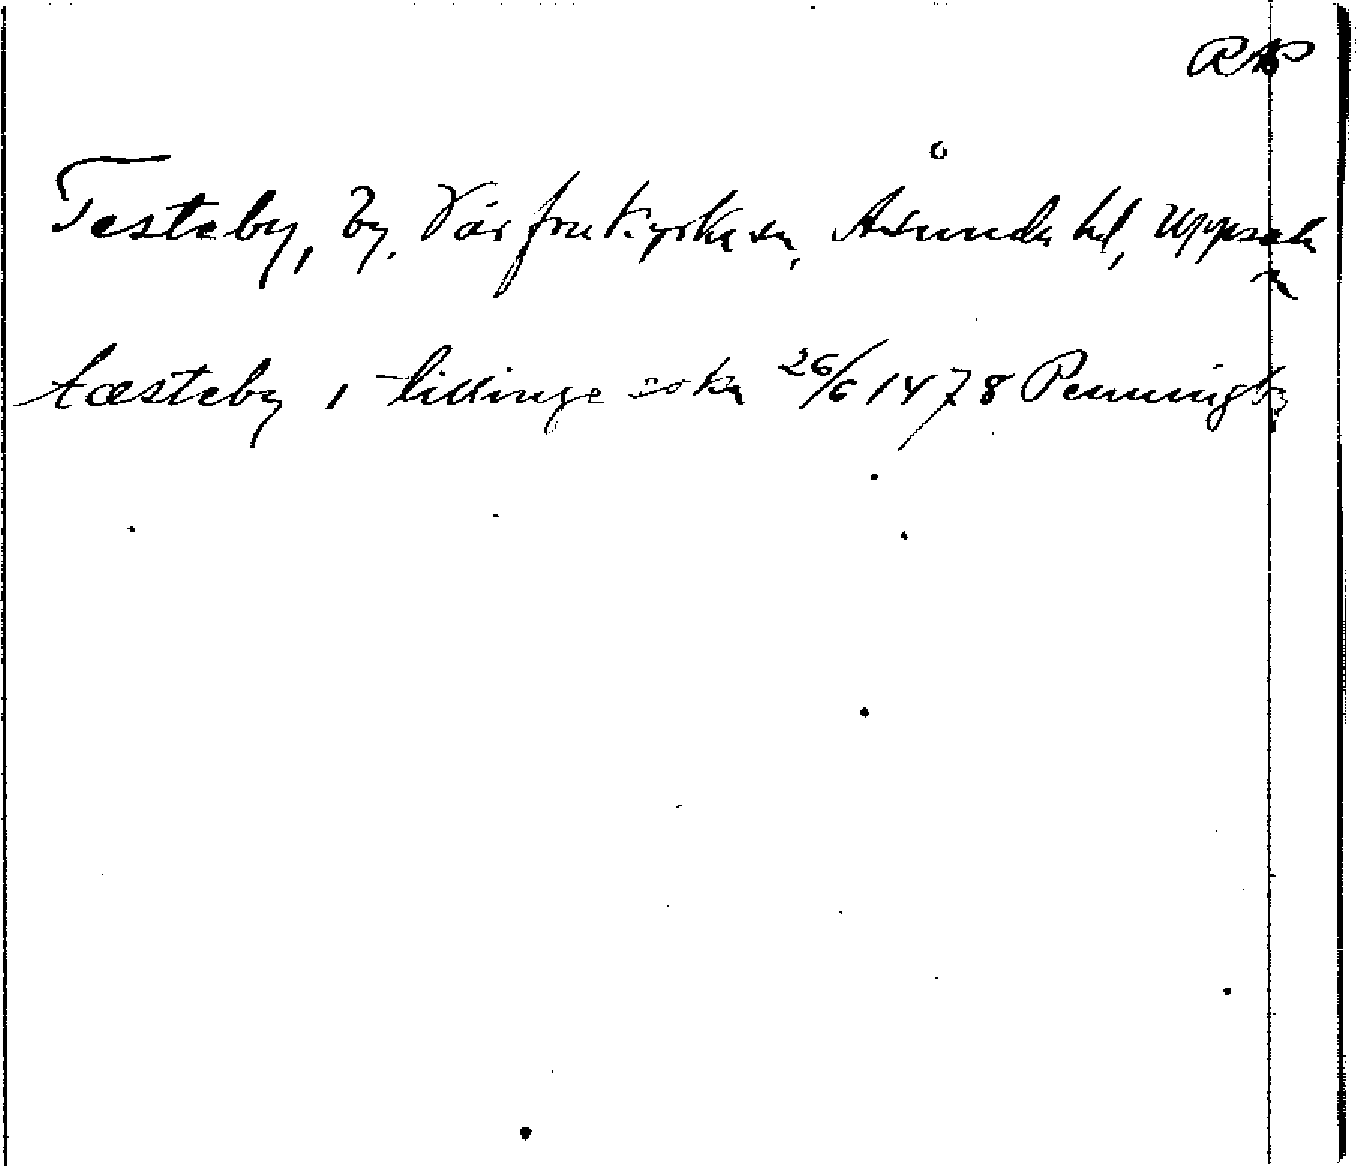 RAP
Testeby, by, Vårfrukyrka sn, Åsunda hd, Uppsala
l
tæsteby i tillinge sokn 26/6 1478 Penningb